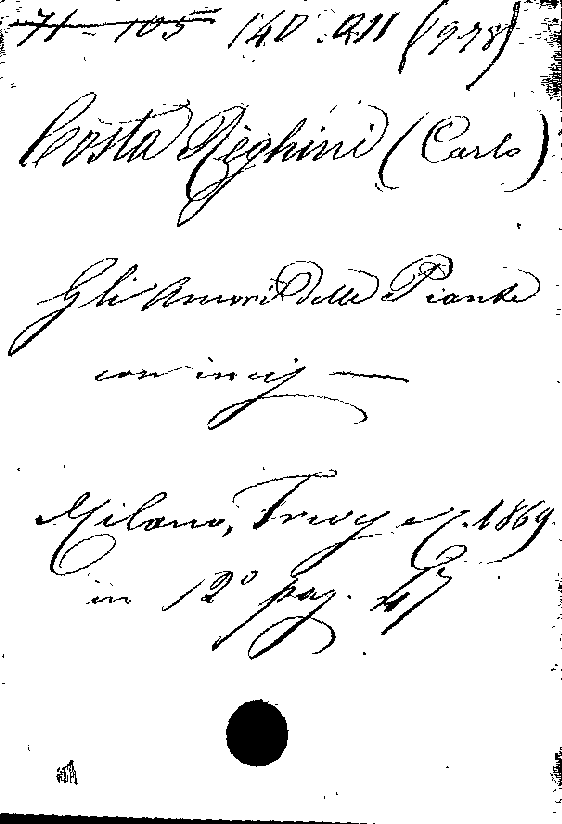 71-105 140.A11 (978)
Costa Reghini (Carlo)
Gli Amori Delle Piante
con incis
Milano, Treves 1869
in 12° pag. 47